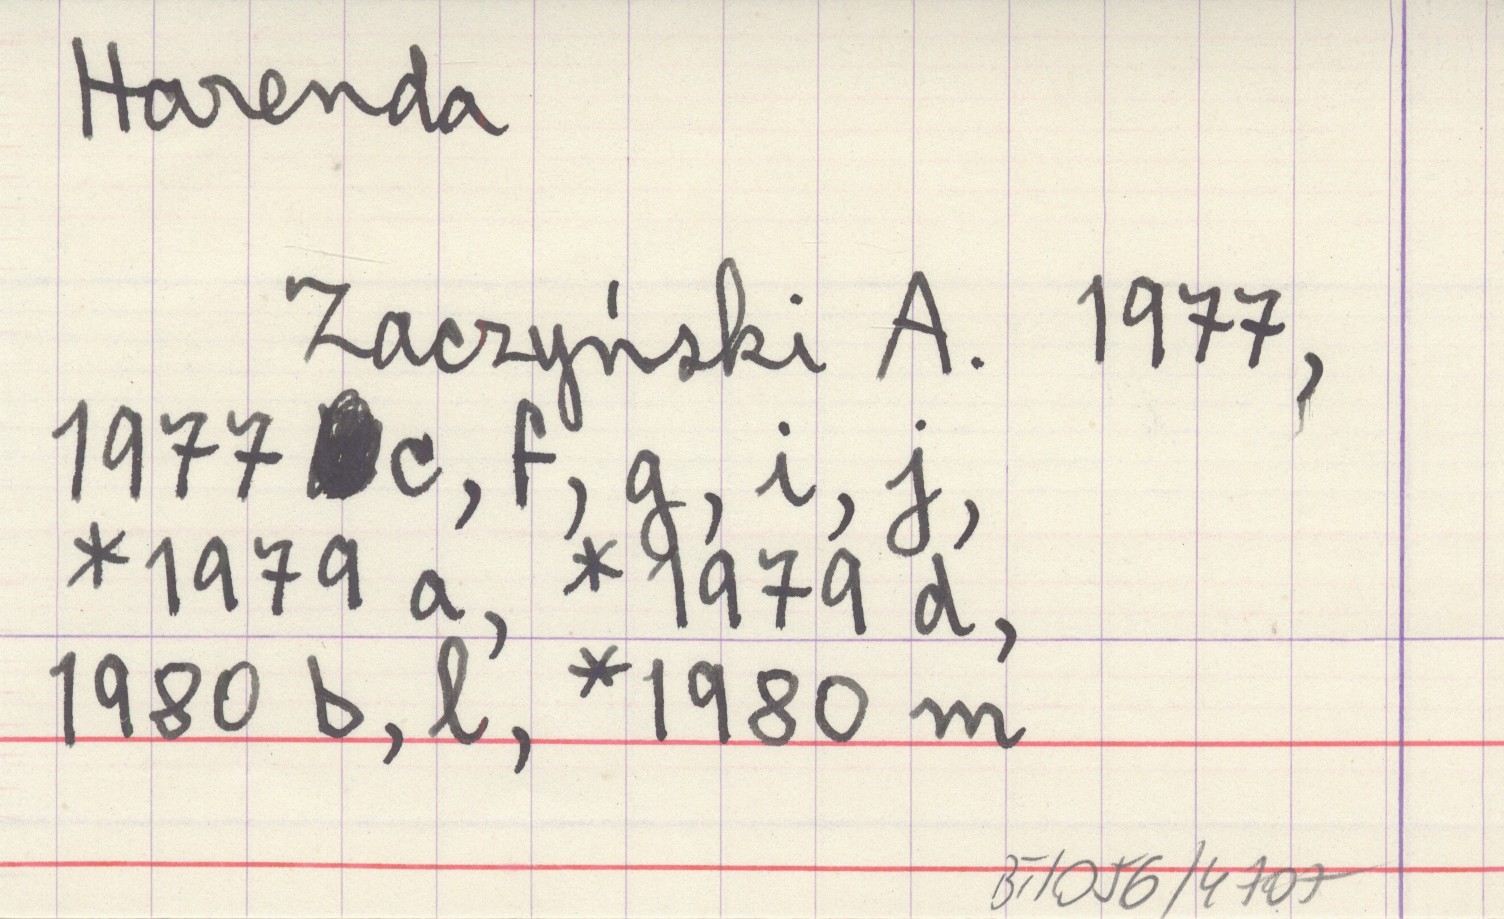 Harenda
Zaczyński A. 1977,
1977 c, f, g, i, j,
*1979 a, *1979 d,
1980 b, l, *1980 m